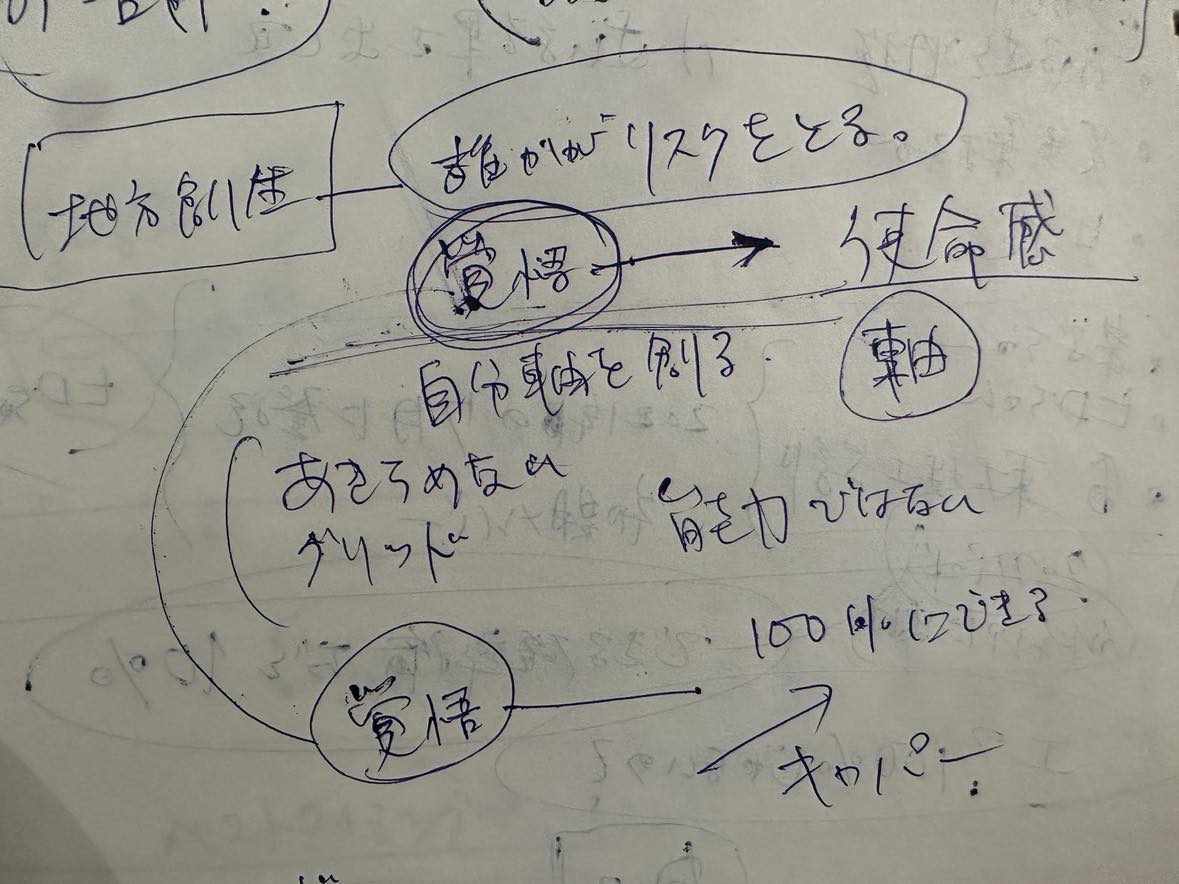 地方創生
誰かがリスクをとる。
覚悟
使命感
自分軸を創る
軸
あきらめない
グリッド
能力ではない
100%にできる
覚悟
キャパ